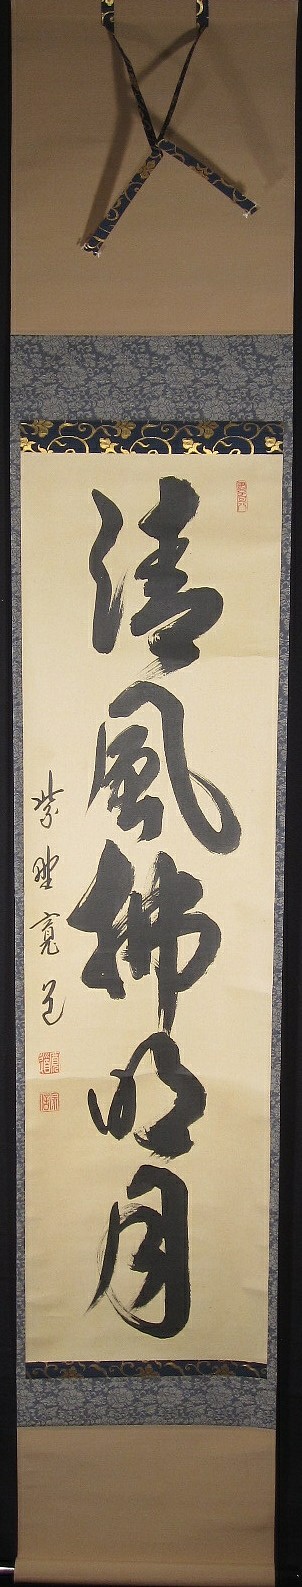 清風拂明月
紫野寛道